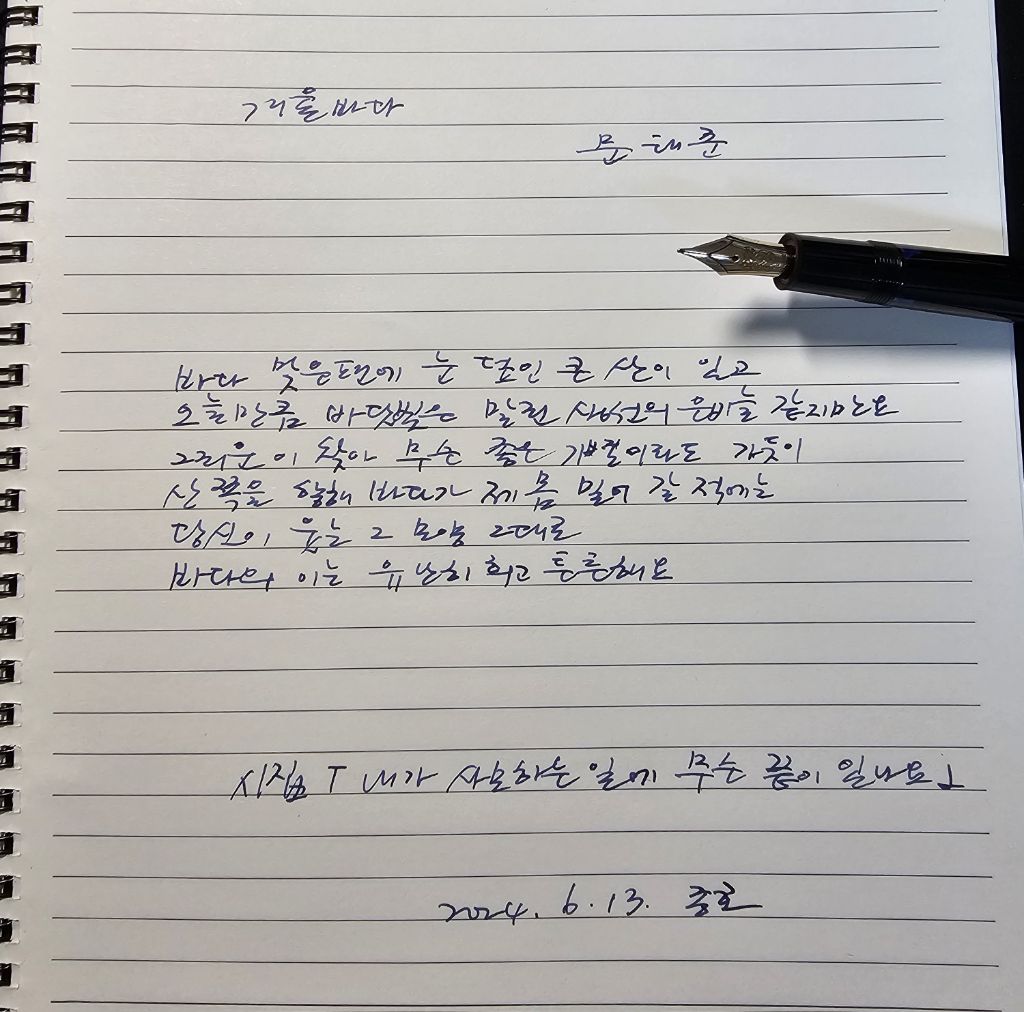 겨울바다
문태준
바다 맞은편에 눈 덮인 큰 산이 있고
오늘만큼 바닷빛은 말린 사백의 은비늘 같지만요
그리운 이 찾아 무슨 좋은 기별이라도 가듯이
산 쪽을 향해 바다가 제 몸 밀어 갈 적에는
당신이 웃는 그 모양 그대로
바다의 이는 유난히 희고 튼튼해요
시집 「내가 사모하는 일에 무슨 끝이 있나요」
2024. 6. 13. 종호